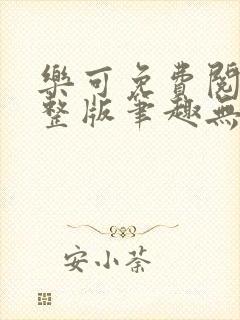 樂可免費閱
整版筆趣無
安小荼